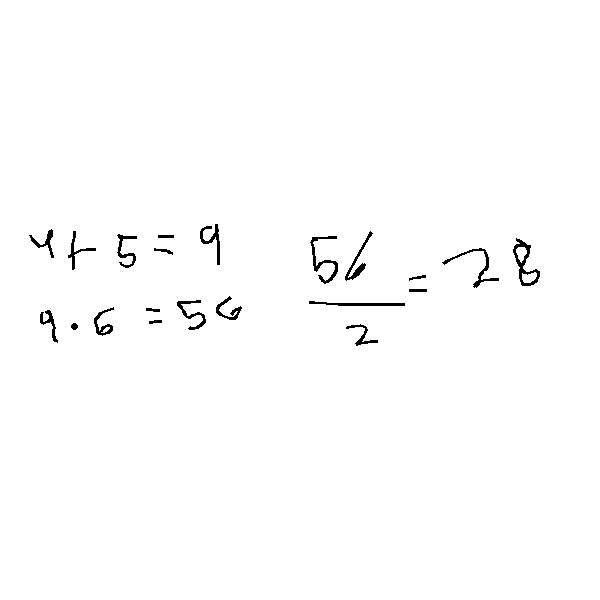 4+5=9
9·6=56
56/2=28